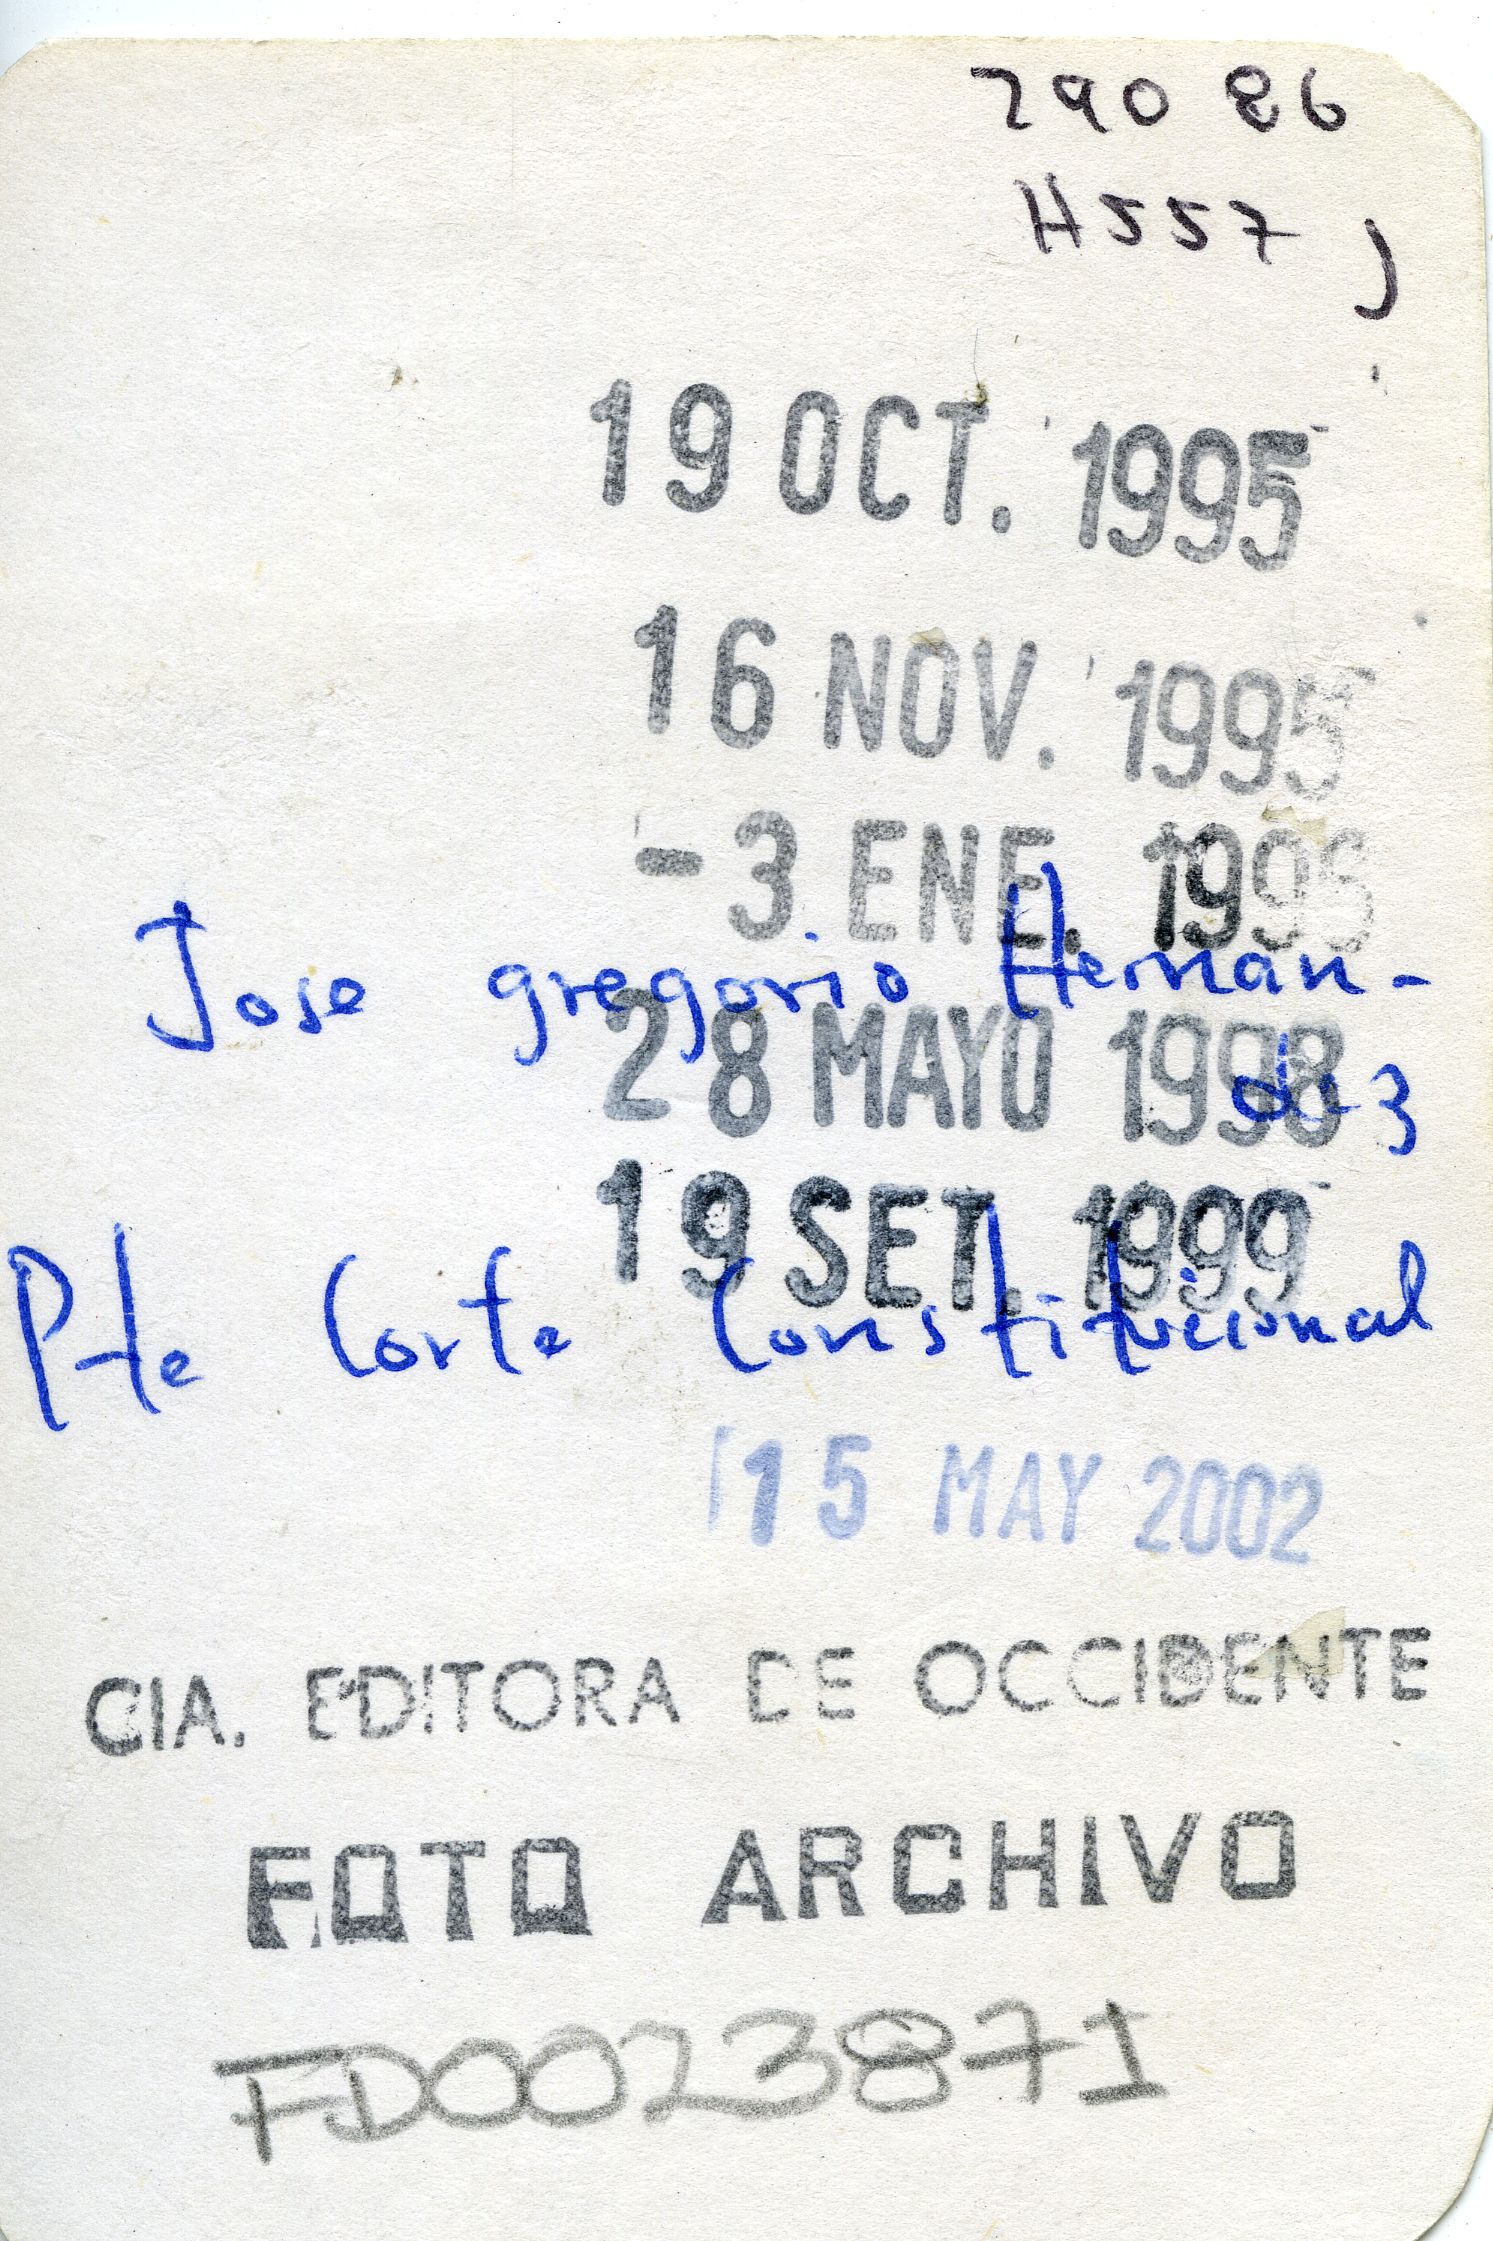 290 86
H557
J
19 OCT. 1995
16 NOV. 1995
-3 ENE. 1996
Jose gregorio Hernán-
dez
28 MAYO 1998
19 SET. 1999
Pte Corte Constitucional
15 MAY 2002
CIA. EDITORA DE OCCIDENTE
FOTO ARCHIVO
FD0023871